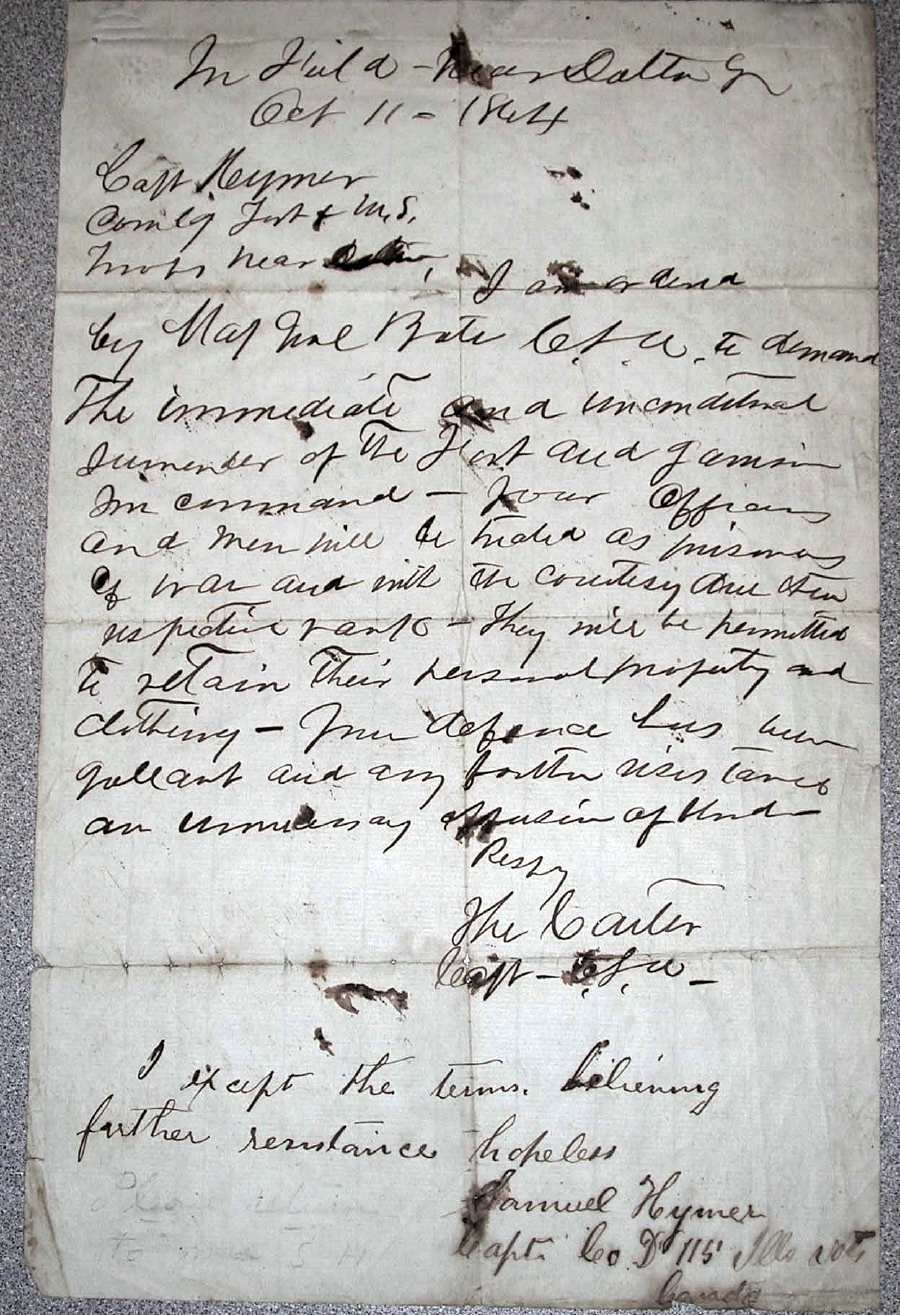 In Field - Near Dalton Ga
Oct 11 - 1864
Capt Hymer
Comdg Fort & U.S.
Troops near
I am ordered
by Maj Genl Bate C.S.A. to demand
The immediate and unconditional
surrender of the Fort and garrison
in command - Your Officers
and men will be treated as prisoners
of war and with the courtesy due their
respective rank - They will be permitted
to retain their personal property and
clothing - Your defence has been
gallant and any further resistance
an unnecessary effusion of blood
Respy
Theo Carter
Capt - C.S.A -
I except the terms. believing
further resistance hopeless
Samuel Hymer
Capt. Co D 115 Ills Vols
Please return
to me S H